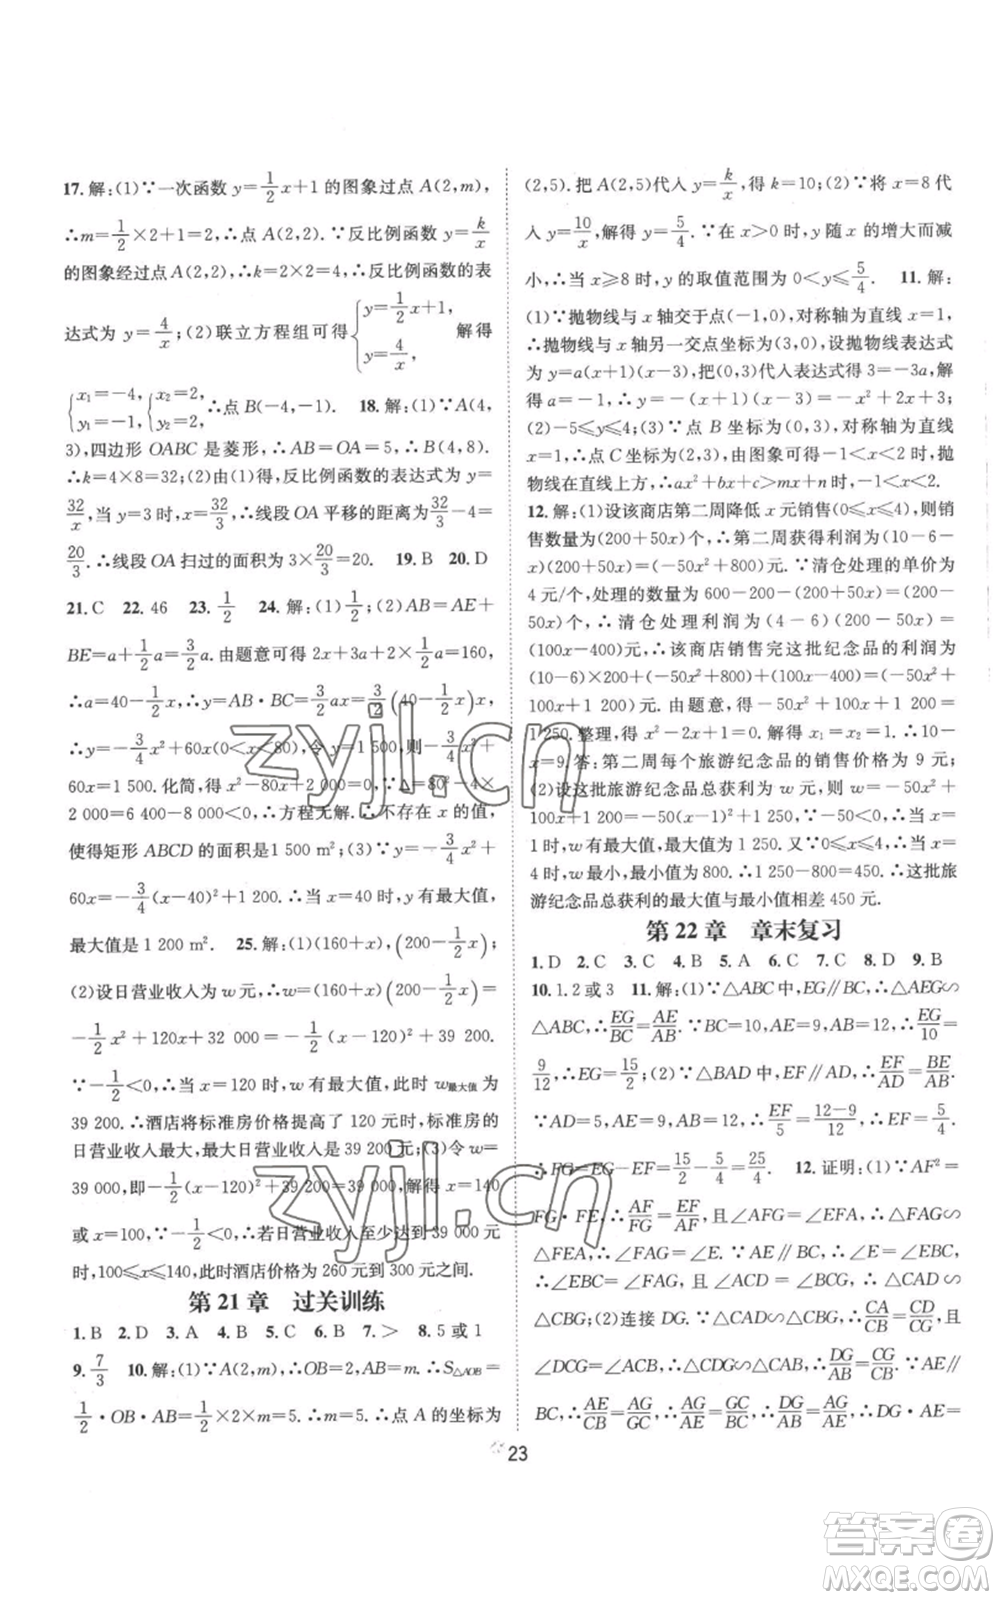 17.解:(1)∵一次函数 y=1/2x+1 的图象过点 A(2,m),
∴m=1/2×2+1=2.∴点 A(2,2).∵反比例函数 y=k/x
的图象经过点 A(2,2),∴k=2×2=4.∴反比例函数的表
达式为 y=4/x;(2)联立方程组可得{y=1/2x+1, y=4/x, 解得
{x₁=-4, y₁=-1, {x₂=2, y₂=2, ∴点 B(-4,-1). 18.解:(1)∵A(4,
3),四边形 OABC 是菱形,∴AB=OA=5,∴B(4,8).
∴k=4×8=32;(2)由(1)得,反比例函数的表达式为 y=
32/x,当 y=3 时,x=32/3,∴线段 OA 平移的距离为32/3-4=
20/3.∴线段 OA 扫过的面积为 3×20/3=20. 19.B 20.D
21.C 22.46 23.1/2 24.解:(1)1/2;(2)AB=AE+
BE=a+1/2a=3/2a.由题意可得 2x+3a+2×1/2a=160,
∴a=40-1/2x,∴y=AB·BC=3/2ax=3/2(40-1/2x)x,
∴y=-3/4x²+60x(0<x<80),令 y=1 500,则-3/4x²+
60x=1 500.化简,得 x²-80x+2 000=0,∵Δ=80²-4×
2 000=6 400-8 000<0,∴方程无解.∴不存在 x 的值,
使得矩形 ABCD 的面积为1 500 m²;(3)∵y=-3/4x²+
60x=-3/4(x-40)²+1 200.∴当 x=40 时,y 有最大值,
最大值是 1 200 m². 25.解:(1)(200+x),(200-1/2x);
(2)设日营业收入为 w 元,∴w=(200+x)(200-1/2x)=
-1/2x²+120x+(200)²=-1/2(x-120)²+39 200.
∵-1/2<0,∴当 x=120 时,w 有最大值,此时 w最大值为
39 200.∴酒店将标准房价格提高了 120 元时,标准房的
日营业收入最大,最大日营业收入是 39 200 元;(3)令 w=
39 000,即-1/2(x-120)²+39 200=39 000,解得 x=140
或 x=100,∵-1/2<0,∴若日营业收入至少达到 39 000 元
时,100≤x≤140,此时酒店价格为 260 元到 300 元之间.
第 21 章 过关训练
1.B 2.D 3.A 4.B 5.C 6.B 7.> 8.5 或 1
9.7/3 10.解:(1)∵A(2,m),∴OB=2,AB=m.∴S△AOB=
1/2·OB·AB=1/2×2×m=5.∴m=5.∴点 A 的坐标为
(2,5).把 A(2,5)代入 y=k/x,得 k=10;(2)∵将 x=8代
入 y=10/x,解得 y=5/4.∵在 x>0 时,y 随 x 的增大而减
小,∴当 x≥8 时,y 的取值范围为 0<y≤5/4. 11.解:
(1)∵抛物线与 x 轴交于点(-1,0),对称轴为直线 x=1,
∴抛物线与 x 轴另一交点坐标为(3,0),设抛物线表达式
为 y=a(x+1)(x-3),把(0,3)代入表达式得 3=-3a,解
得 a=-1,∴y=-(x+1)(x-3)=-x²+2x+3;
(2)-5≤y≤4;(3)∵点 B 坐标为(3,0),对称轴为直线
x=1,∴点 C 坐标为(2,3),由图象可得 2<x<3 时,抛
物线在直线上方,∴ax²+bx+c>mx+n 时,2<x<3.
12.解:(1)设该商店第二周降低 x 元销售(0≤x≤4),则销
售数量为(200+50x)个,∴第二周获得利润为(10-6-
x)(200+50x)=(-50x²+800)元.∵清仓处理的单价为
4 元/个,处理的数量为 600-200-(200+50x)=(200-
50x)个,∴清仓处理利润为(4-6)(200-50x)=
(100x-400)元,∴该商店销售完这批纪念品的利润为
(10-6)×200+(-50x²+800)+(100x-400)=(-50x²+
100x+1 200)元.由题意,得-50x²+100x+1 200=
1 250.整理,得 x²-2x+1=0.解得 x₁=x₂=1.∴10-
x=9.答:第二周每个旅游纪念品的销售价格为 9 元;
(2)设这批旅游纪念品总获利为 w 元,则 w=-50x²+
100x+1 200=-50(x-1)²+1 250,∵-50<0,∴当 x=
1 时,w 最大,最大值为 1 250.∵0≤x≤4,∴当 x=
4 时,w 最小,最小值为 800.∴1 250-800=450.∴这批旅
游纪念品总获利的最大值与最小值相差 450 元.
第 22 章 章末复习
1.D 2.C 3.C 4.B 5.A 6.C 7.C 8.D 9.B
10.1.2 或 3 11.解:(1)∵△ABC 中,EG∥BC,∴△AEG∽
△ABC,∴EG/BC=AE/AB.∵BC=10,AE=9,AB=12,∴EG/10=
9/12,∴EG=15/2;(2)∵△BAD 中,EF∥AD,∴EF/AD=BE/AB.
∵AD=5,AE=9,AB=12,∴EF/5=12-9/12,∴EF=5/4,
∴FG=EG-EF=15/2-5/4=25/4. 12.证明:(1)∵AF²=
FG·FE,∴AF/FG=EF/AF,且∠AFG=∠EFA,∴△FAG∽
△FEA,∴∠FAG=∠E.∵AE∥BC,∴∠E=∠EBC,
∴∠EBC=∠FAG,且∠ACD=∠BCG,∴△CAD∽
△CBG;(2)连接 DG.∵△CAD∽△CBG,∴CA/CB=CD/CG,且
∠DCG=∠ACB,∴△CDG∽△CAB,∴DG/AB=CG/CB.∵AE∥
BC,∴AE/CB=AG/GC,∴AG/AE=GC/BC,∴DG/AB=AG/AE,∴DG·AE=
23
zyjl.cn
zyjl.cn
答案圈
MXQE.COM